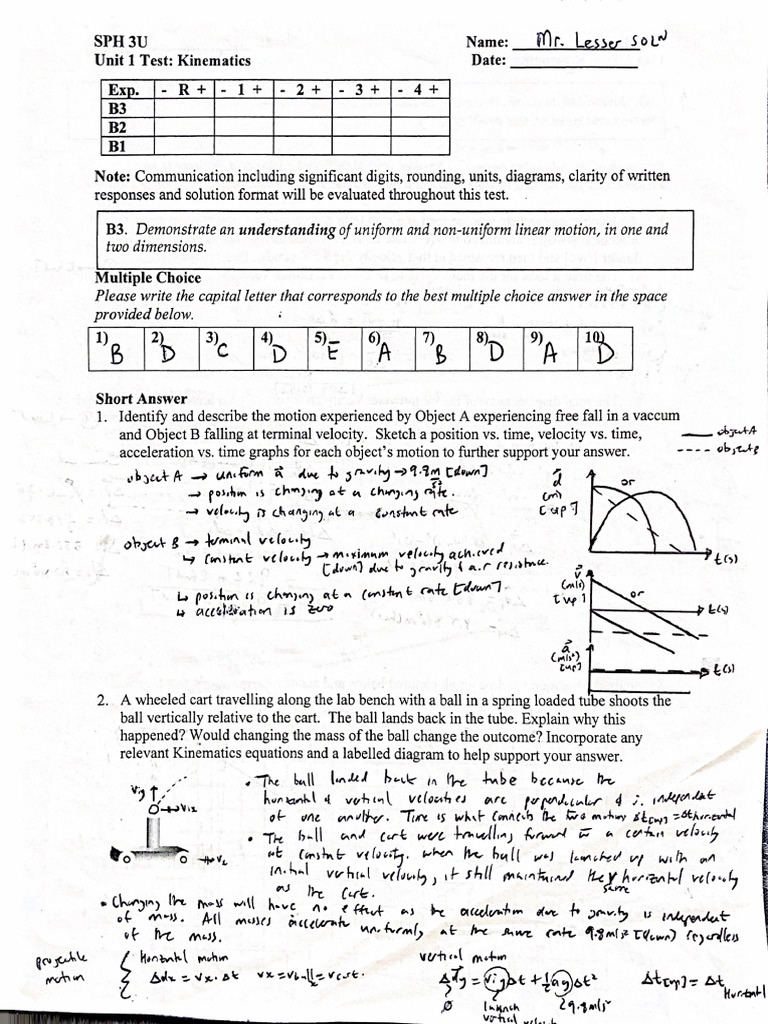 SPH 3U
Name: Mr. Lesser SOLN
Unit 1 Test: Kinematics
Date:
Exp. - R + - 1 + - 2 + - 3 + - 4 +
B3
B2
B1
Note: Communication including significant digits, rounding, units, diagrams, clarity of written
responses and solution format will be evaluated throughout this test.
B3. Demonstrate an understanding of uniform and non-uniform linear motion, in one and
two dimensions.
Multiple Choice
Please write the capital letter that corresponds to the best multiple choice answer in the space
provided below.
1) B 2) D 3) C 4) D 5) E 6) A 7) B 8) D 9) A 10) D
Short Answer
1. Identify and describe the motion experienced by Object A experiencing free fall in a vaccum
and Object B falling at terminal velocity. Sketch a position vs. time, velocity vs. time,
acceleration vs. time graphs for each object's motion to further support your answer.
object A
object B
object A → uniform a⃗ due to gravity → 9.8 m/s² [down]
→ position is changing at a changing rate.
→ velocity is changing at a constant rate
object B → terminal velocity
↳ constant velocity → maximum velocity achieved
[down] due to gravity & air resistance.
↳ position is changing at a constant rate [down].
↳ acceleration is zero
d⃗
(m)
[up]
or
t(s)
v⃗
(m/s)
[up]
or
t(s)
a⃗
(m/s²)
[up]
t(s)
2. A wheeled cart travelling along the lab bench with a ball in a spring loaded tube shoots the
ball vertically relative to the cart. The ball lands back in the tube. Explain why this
happened? Would changing the mass of the ball change the outcome? Incorporate any
relevant Kinematics equations and a labelled diagram to help support your answer.
• The ball landed back in the tube because the
horizontal & vertical velocities are perpendicular & ∴ independent
of one another. Time is what connects the two motions Δt[up] = Δt horizontal
• The ball and cart were travelling forward to a certain velocity
at constant velocity. When the ball was launched up with an
initial vertical velocity, it still maintained the same horizontal velocity
as the cart.
• Changing the mass will have no effect as the acceleration due to gravity is independent
of mass. All masses accelerate uniformly at the same rate 9.8 m/s² [down] regardless
of the mass.
projectile
motion
Horizontal motion
Δdx = vx · Δt vx = vball = vcart.
vertical motion
Δdy = viyΔt + ½ayΔt²
Δt[up] = Δt Horizontal
launch
vertical
9.8m/s²